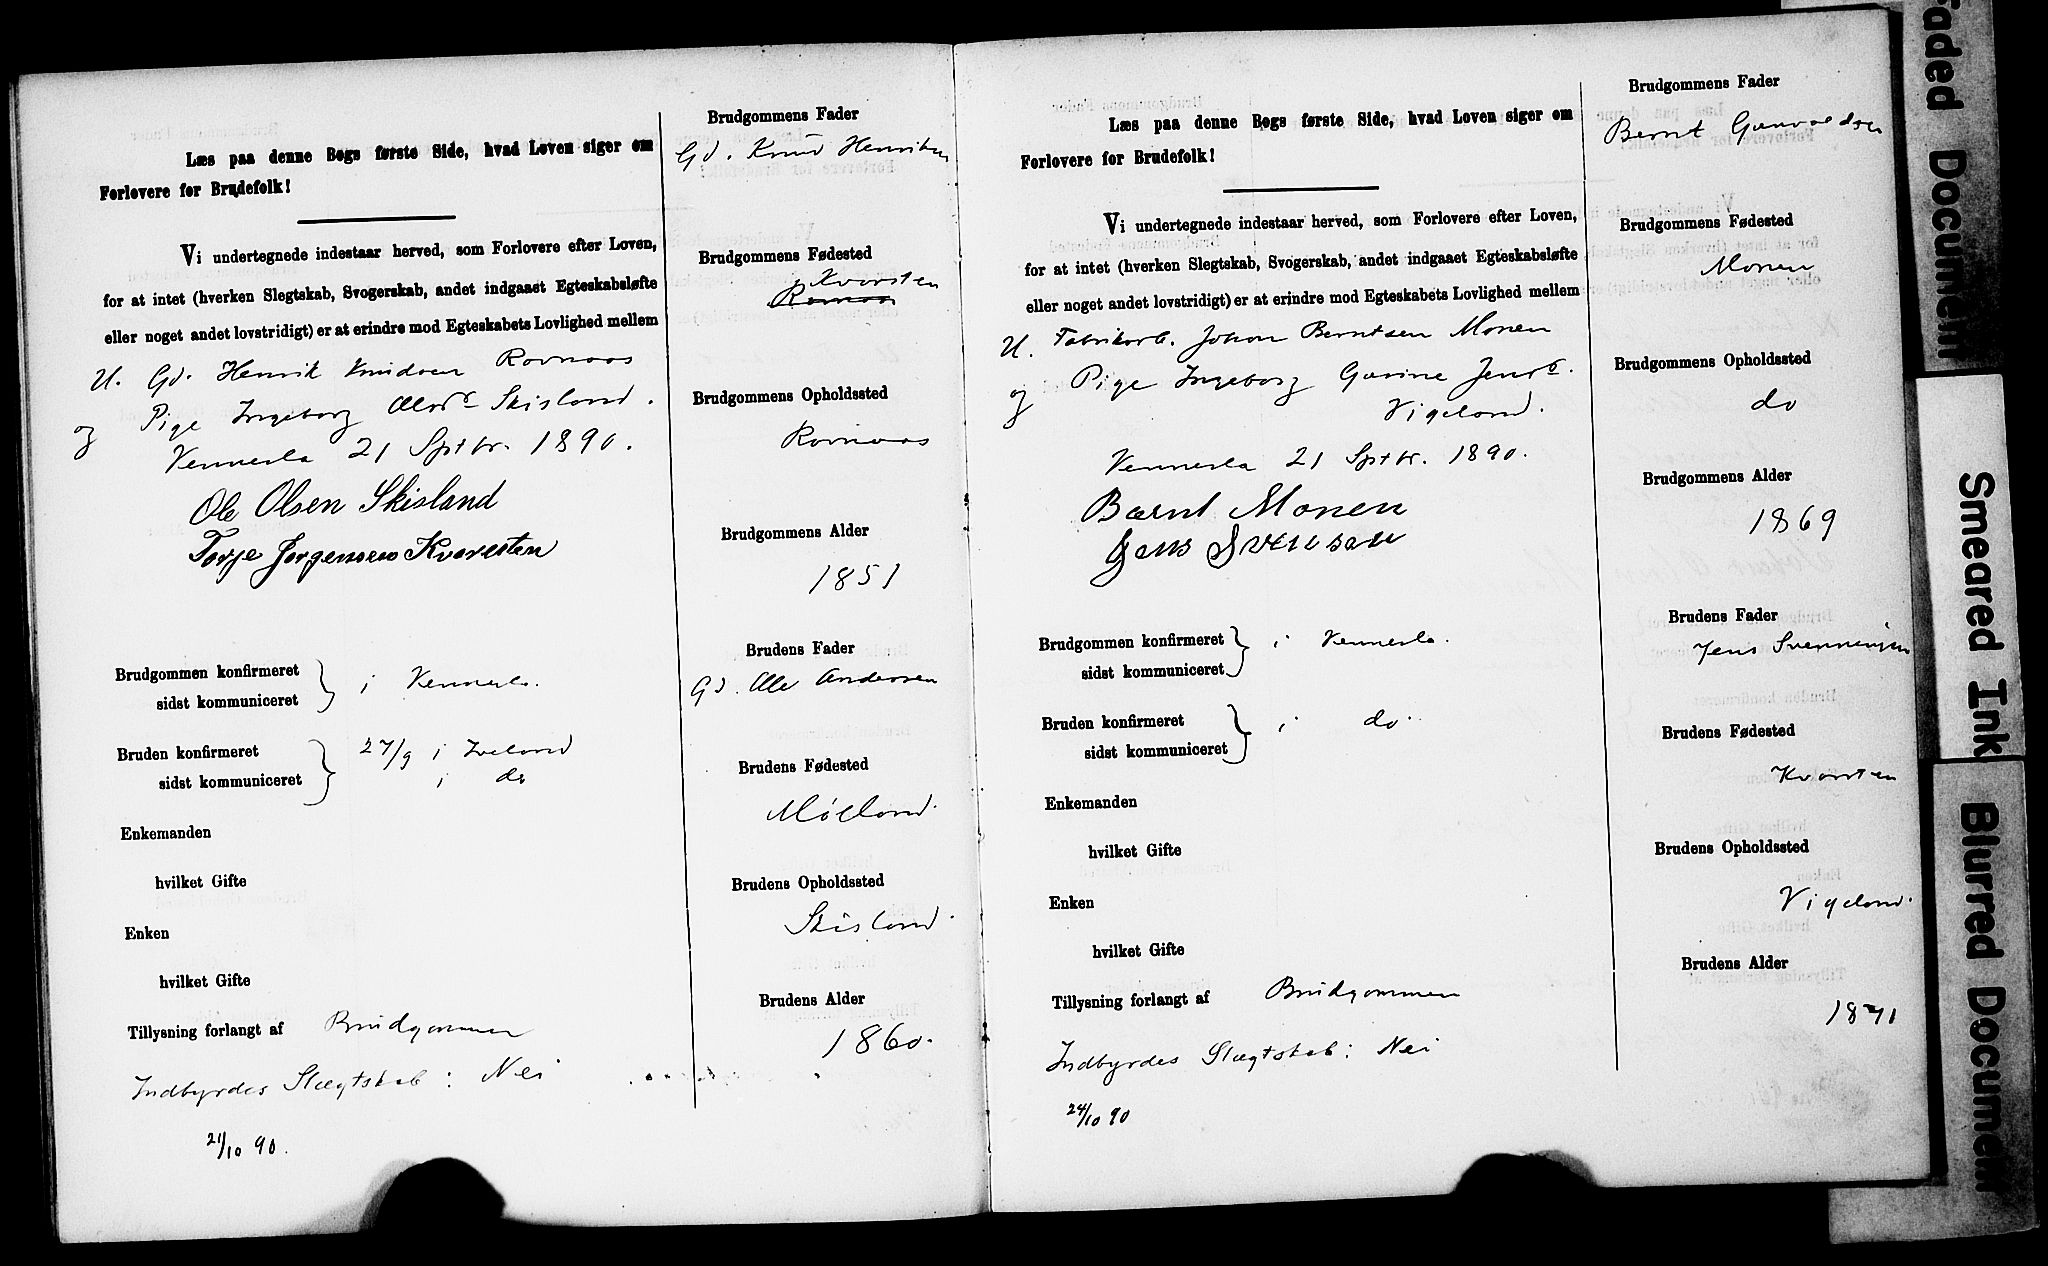 Læs paa denne Bogs første Side, hvad Loven siger om
Forlovere for Brudefolk!
Vi undertegnede indestaar herved, som Forlovere efter Loven,
for at intet (hverken Slegtskab, Svogerskab, andet indgaaet Egteskabsløfte
eller noget andet lovstridigt) er at erindre mod Egteskabets Lovlighed mellem
U. Gd. Henrik Knudsen Rovnaas
og Pige Ingeborg Olsd. Skisland.
Vennesla 21 Sptbr. 1890.
Ole Olsen Skisland
Torje Jørgensen Kvoresten
Brudgommen konfirmeret
sidst kommuniceret
i Vennesla.
Bruden konfirmeret
27/9 i Iveland
sidst kommuniceret
i do
Enkemanden
hvilket Gifte
Enken
hvilket Gifte
Tillysning forlangt af Brudgommen
Indbyrdes Slægtskab: Nei
21/10 90.
Brudgommens Fader
Gd. Knud Henriksen
Brudgommens Fødested
Kvorsten
Rovnaas
Brudgommens Opholdssted
Rovnaas
Brudgommens Alder
1851
Brudens Fader
Gd. Ole Andersen
Brudens Fødested
Møeland.
Brudens Opholdssted
Skisland.
Brudens Alder
1860.
Læs paa denne Bogs første Side, hvad Loven siger om
Forlovere for Brudefolk!
Vi undertegnede indestaar herved, som Forlovere efter Loven,
for at intet (hverken Slegtskab, Svogerskab, andet indgaaet Egteskabsløfte
eller noget andet lovstridigt) er at erindre mod Egteskabets Lovlighed mellem
U. Fabrikarb. Johan Berntsen Monen
og Pige Ingeborg Gurine Jensd.
Vigeland.
Vennesla 21 Sptbr. 1890.
Bærnt Monen
Jens Svensen
Brudgommen konfirmeret
sidst kommuniceret
i Vennesla.
Bruden konfirmeret
sidst kommuniceret
i do.
Enkemanden
hvilket Gifte
Enken
hvilket Gifte
Tillysning forlangt af Brudgommen
Indbyrdes Slægtskab: Nei
24/10 90
Brudgommens Fader
Bernt Gunvaldsen
Brudgommens Fødested
Monen
Brudgommens Opholdssted
do
Brudgommens Alder
1869
Brudens Fader
Jens Svenningsen
Brudens Fødested
Kvorsten
Brudens Opholdssted
Vigeland.
Brudens Alder
1871
Faded Document
Smeared Ink
Blurred Document